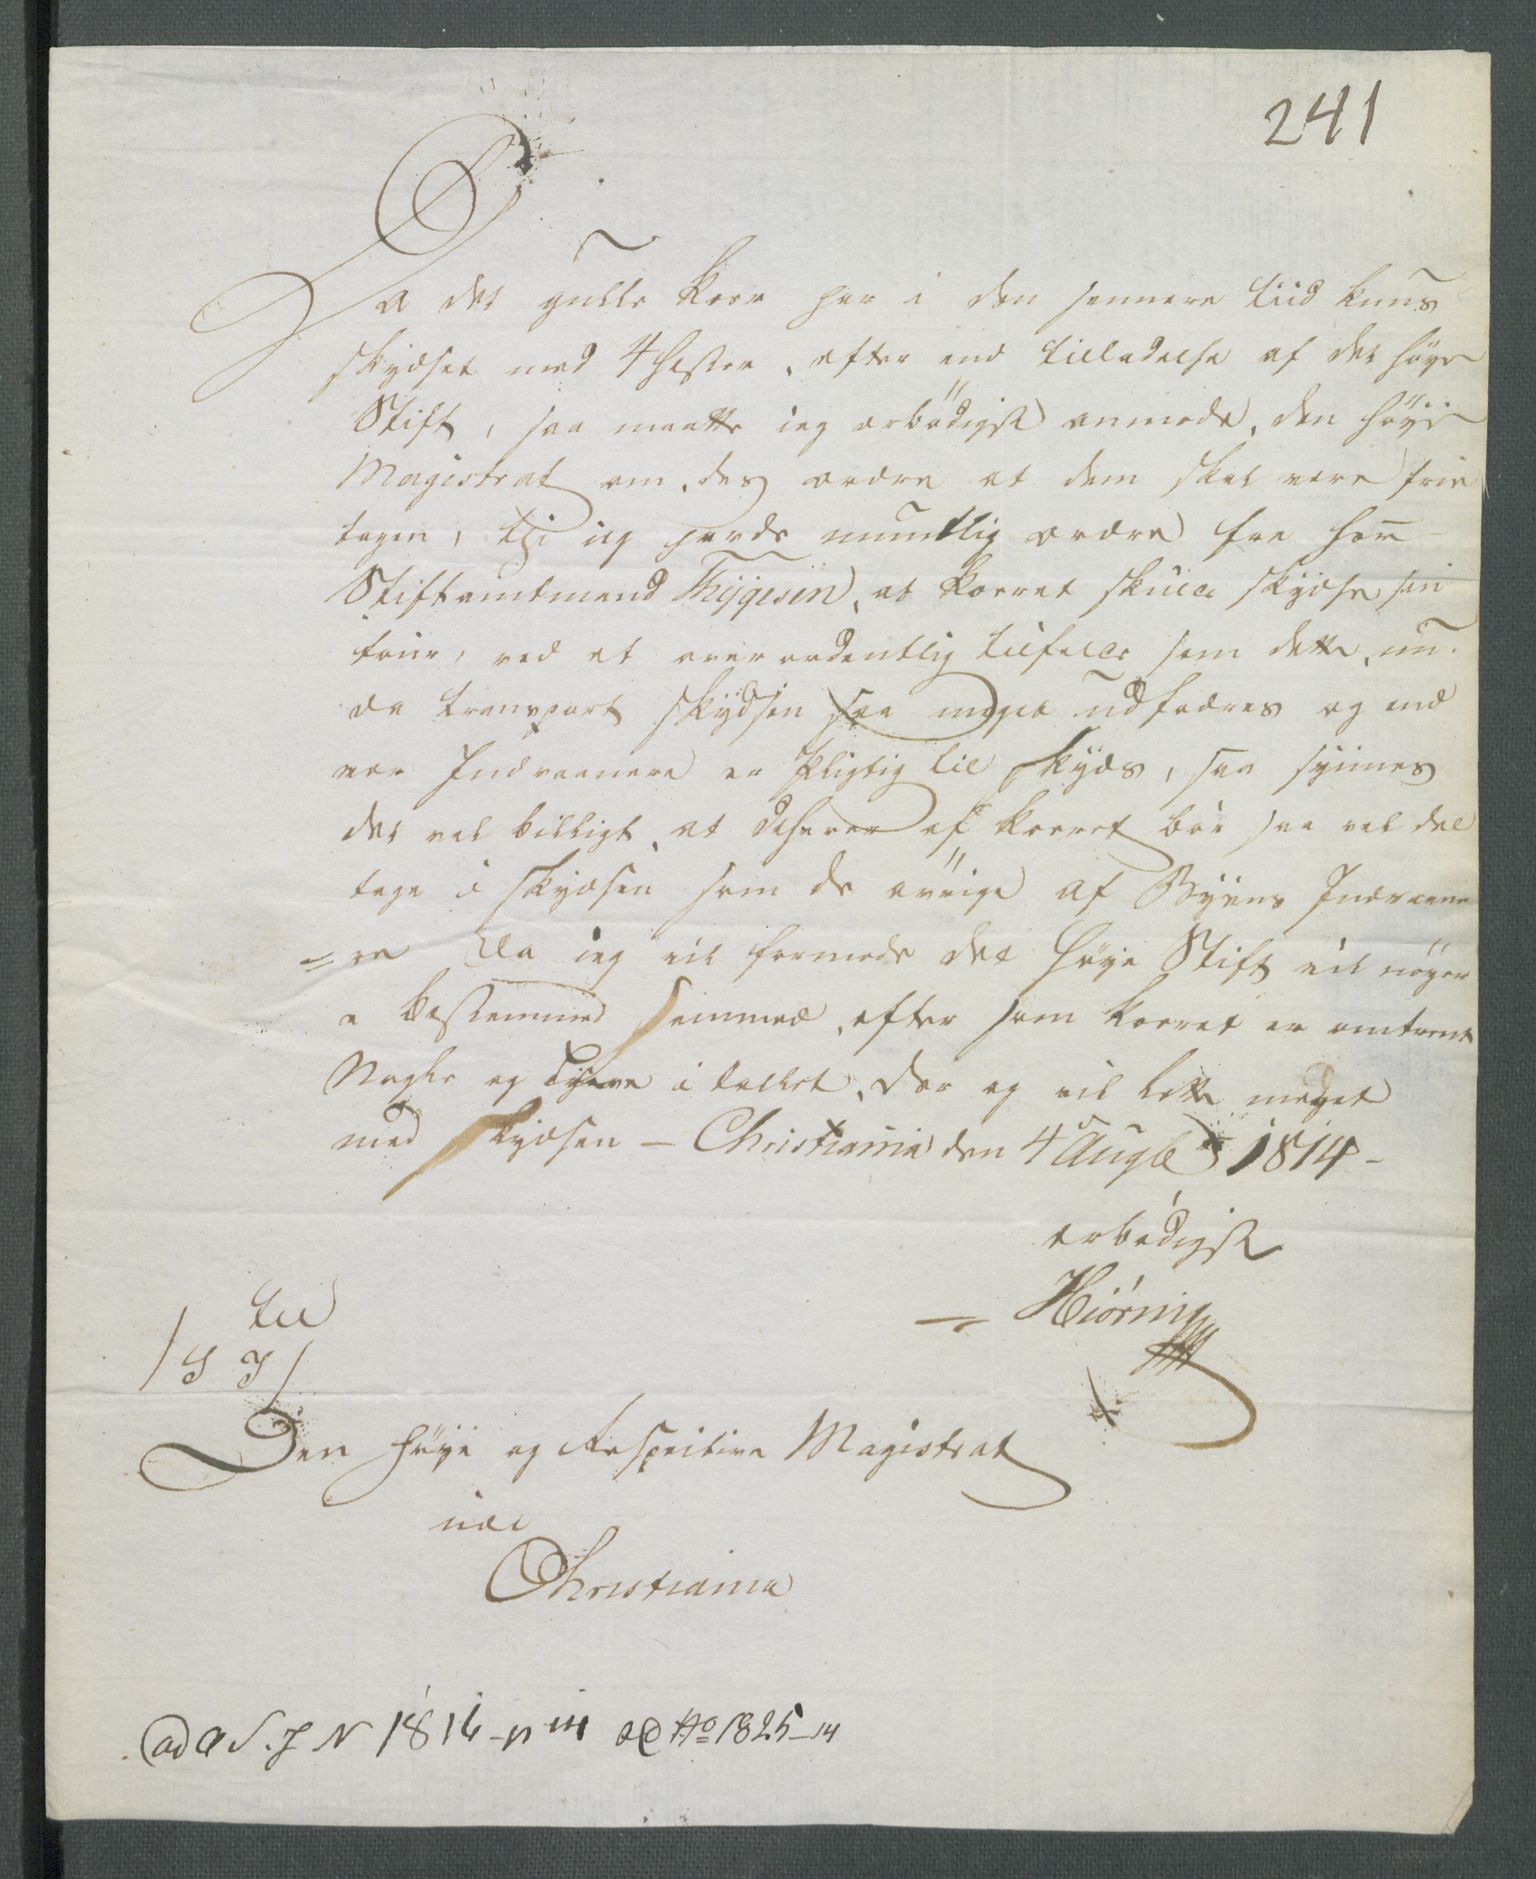 241
Da det gulle Koor har i den sennere tiid kuns
skydset med 4 hester, efter end tilladelse af det höye
Stift, saa maatte ieg erbödigst anmode, den höye
Magistrat om des ordre at dem skal vere frie
tagen, thi ieg havde mundtlig ordre fra her
Stiftamtmand Thygesen, at Korret skulle skydse
ved et overordentlig tilfelde som dette, nu
da transport skydsen saa meget udfodres og end
ver Indvaanere er Pligtig til skyds, saa synnes
det vel billigt, at af korret bör saa vel del
tage i skydsen som de övrige af Byens Indvaane
= re Da ieg vil formode det höye Stift vil nöyer
e bestemmed semmed, efter som korret er omtrent
Nogle og i tallet, der og vil lette meget
med skydsen – Christiania den 4 Augst 1814 –
erbödigst
Hiörnig
til
/ S T /
Den höye og Respective Magistrat
udi
Christiania
ad A S. J N 1816 – 14 ad No 1825 – 14